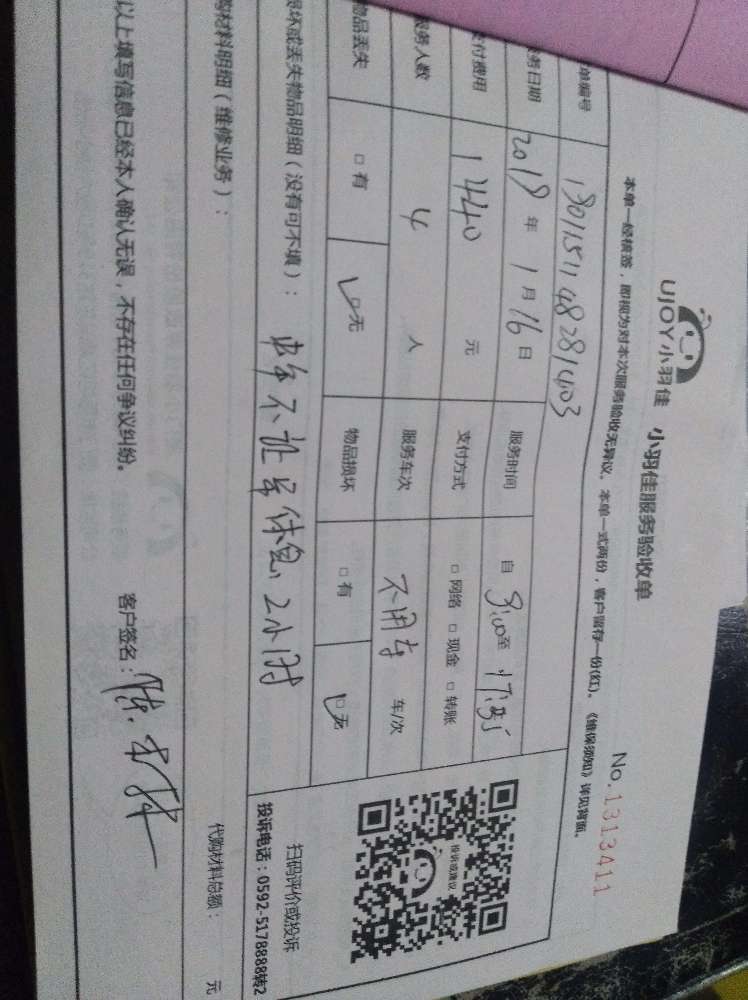 UJOY小羽佳 小羽佳服务验收单
No.1313411
本单一经核签，即视为对本次服务验收无异议。本单一式两份，客户留存一份(红)。《维保须知》详见背面。
单编号
务日期 2018年1月16日 服务时间 自 8:00至
付费用 1440 元 支付方式 □网络 □现金 □转账
服务人数 4 人 服务车次 不用车 车/次
物品丢失 □有 □无 物品损坏 □有 □无
损坏或丢失物品明细（没有可不填）： 休息，2小时
投诉或建议
扫码评价或投诉
投诉电话：0592-5178888转2
购材料明细（维修业务）： 代购材料总额： 元
以上填写信息已经本人确认无误，不存在任何争议纠纷。 客户签名：